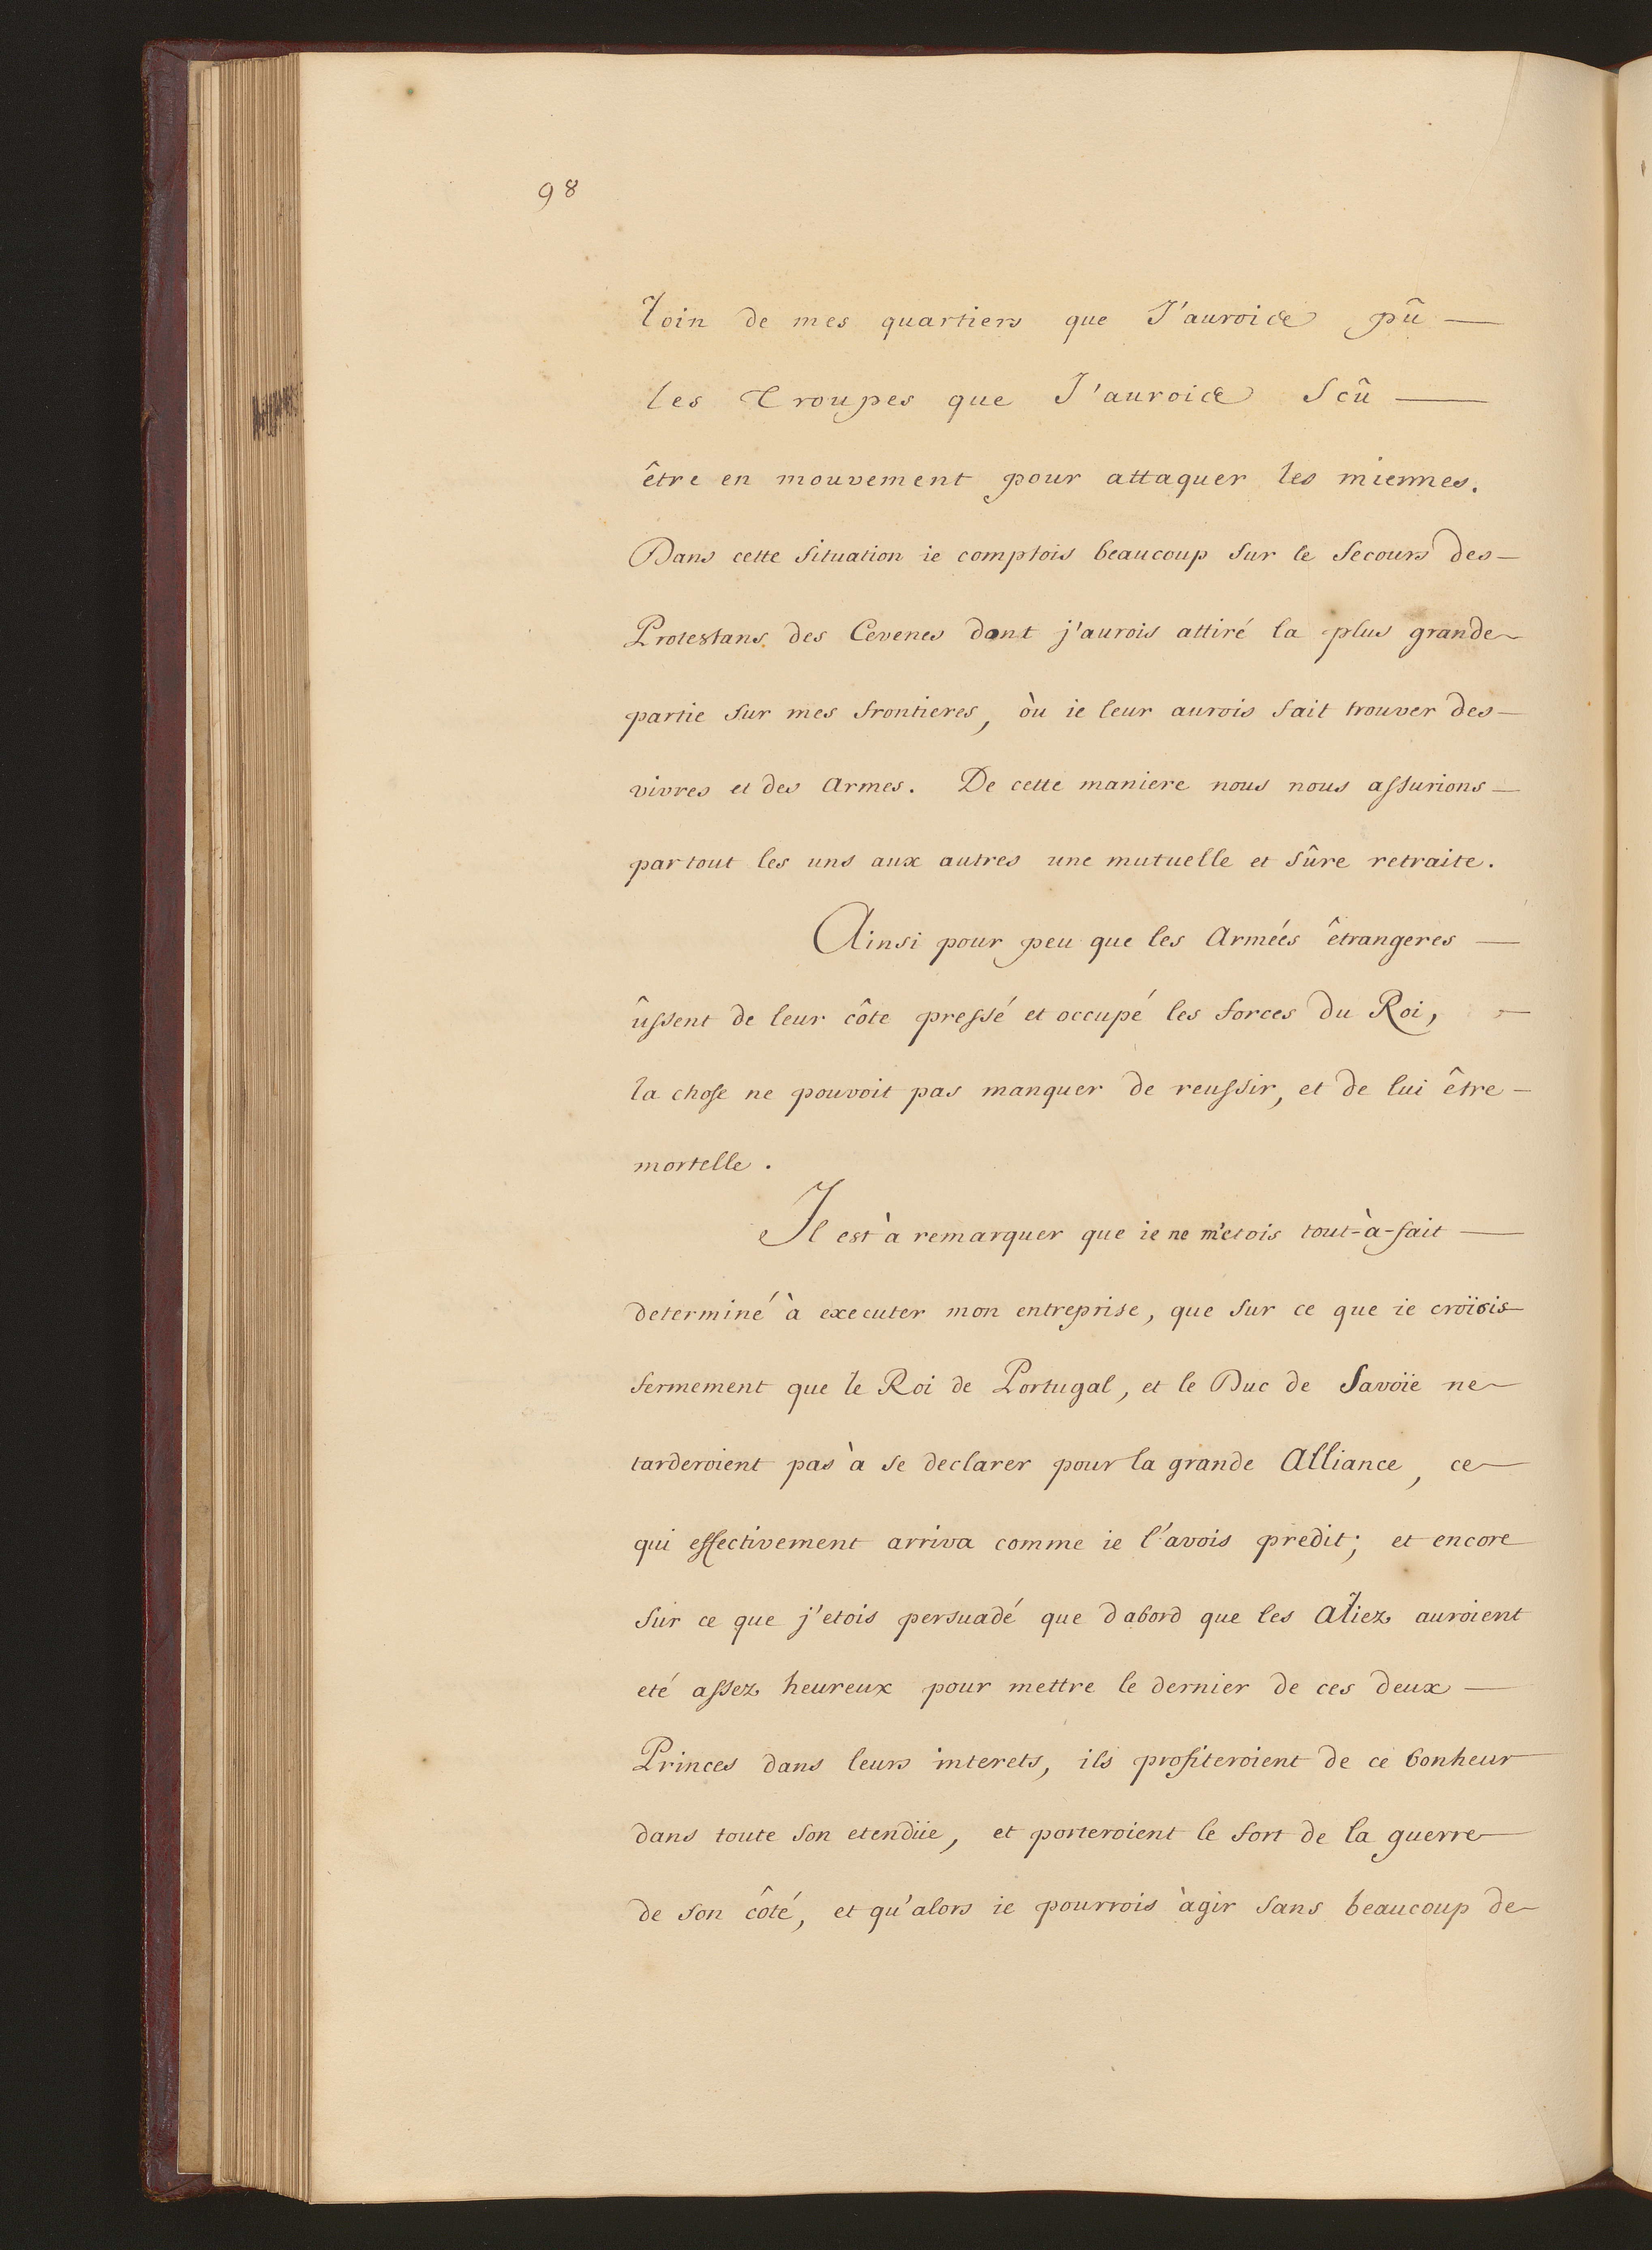 98
loin de mes quartiers que J'aurois pû —
les Troupes que J'aurois Scû —
être en mouvement pour attaquer les miennes.
Dans cette Situation ie comptois beaucoup Sur le Secours des —
Protestans des Cevenes dont j'aurois attiré la plus grande
partie Sur mes frontieres, òu ie leur aurois fait trouver des —
vivres et des Armes. De cette maniere nous nous assurions —
par tout les uns aux autres une mutuelle et Sûre retraite.
Ainsi pour peu que les Armées êtrangeres —
ûssent de leur côte pressé et occupé les forces du Roi, —
la chose ne pouvoit pas manquer de reussir, et de lui être —
mortelle.
Il est à remarquer que ie ne m'etois tout-à-fait —
determiné à executer mon entreprise, que Sur ce que ie croïois
fermement que le Roi de Portugal, et le Duc de Savoïe ne
tarderoient pas à se declarer pour la grande Alliance, ce
qui effectivement arriva comme ie l'avois predit; et encore
Sur ce que j'etois persuadé que dabord que les Aliez auroient
eté assez heureux pour mettre le dernier de ces deux —
Princes dans leurs interets, ils profiteroient de ce bonheur
dans toute Son etendüe, et porteroient le fort de la guerre
de Son côté, et qu'alors ie pourrois àgir Sans beaucoup de